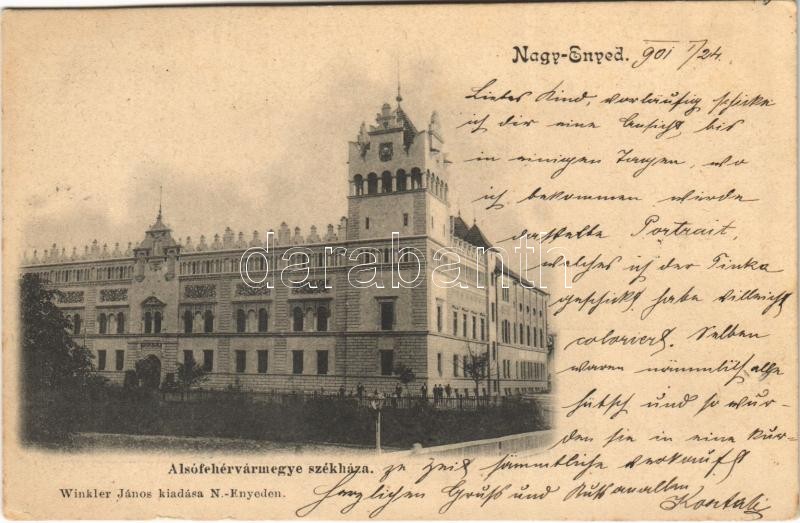 Nagy-Enyed. 901 1/24.
Liebes Kind, vorläufig schicke
ich dir eine Ansicht, bis
in einigen Tagen, wo
ich bekommen würde
dasselbe Portrait,
welches ich der Tinka
geschickt habe vielleicht
coloriert. Selben
waren nämmlich alle
hübsch und so wur-
den sie in eine kur-
ze Zeit sämmtliche verkauft
Herzlichen Gruss und Kuss
darabanth
Alsófehérvármegye székháza.
Winkler János kiadása N.-Enyeden.